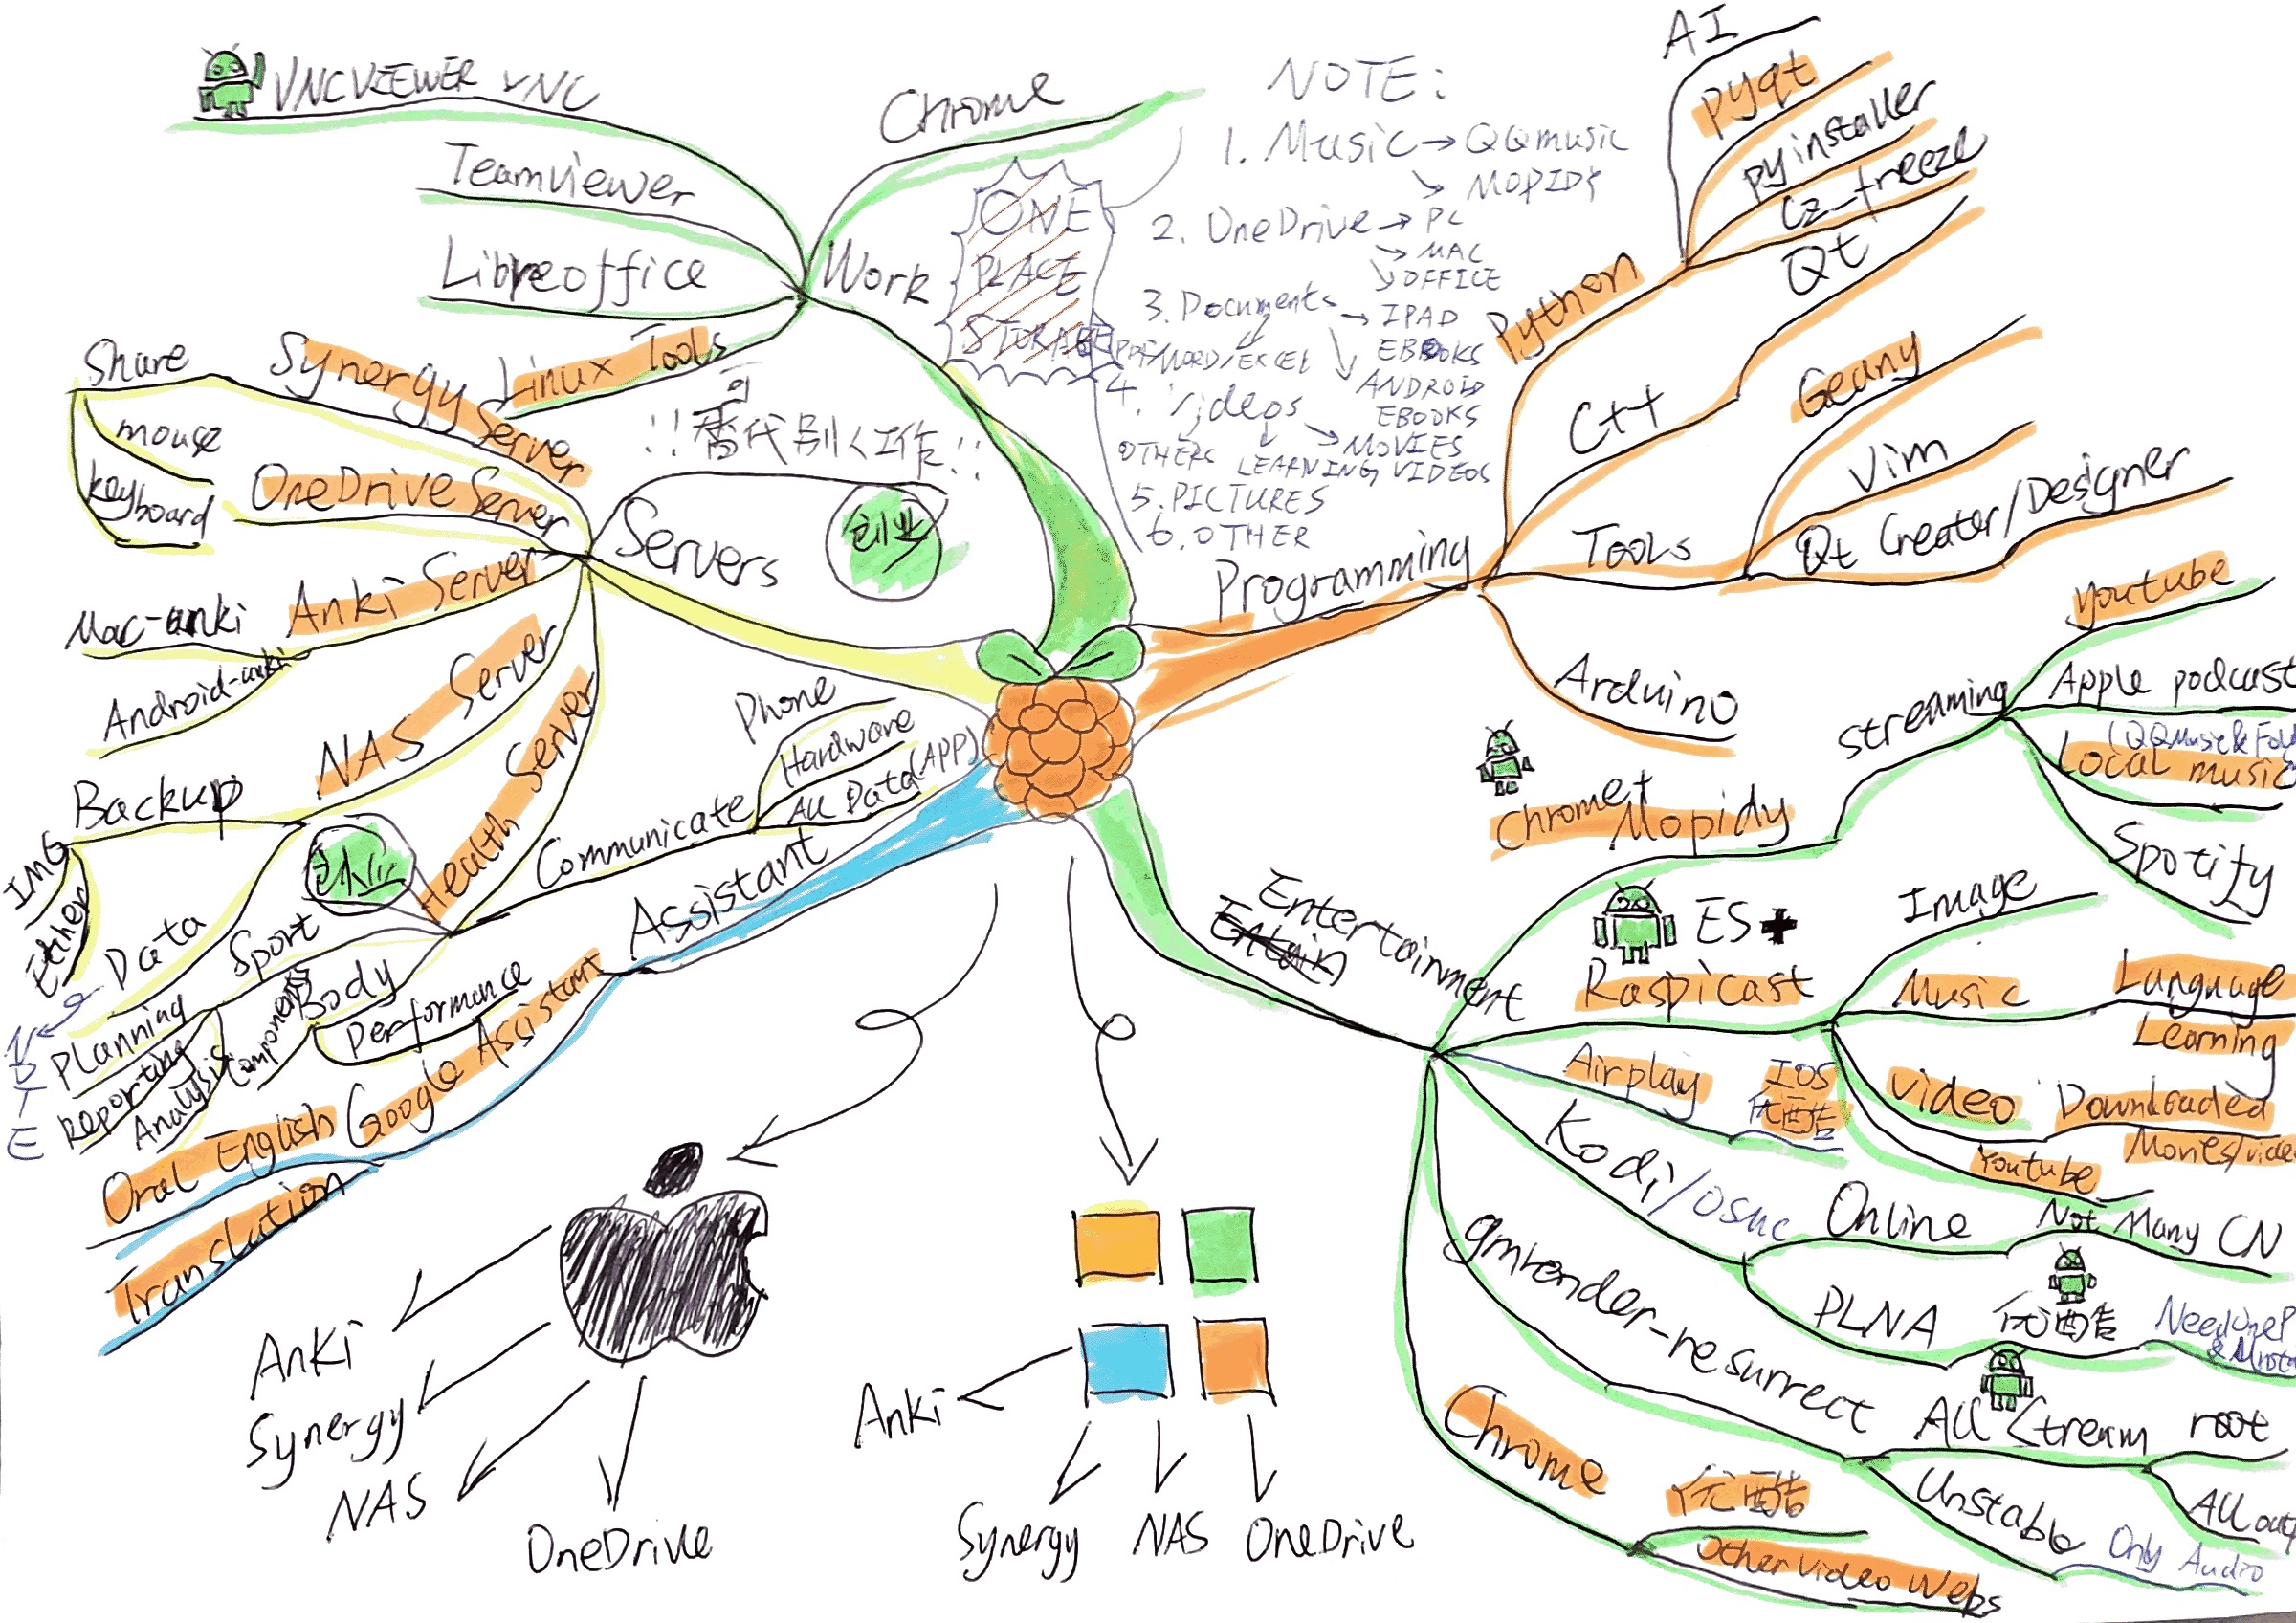 VNCVIEWER VNC
Teamviewer
Libreoffice
Linux Tools
Chrome
Work
ONE
PLACE
STORAGE
可
!!替代别人工作!!
NOTE:
1. Music → QQmusic
↘ MOPIDY
2. OneDrive → PC
↘ MAC
↘ OFFICE
3. Documents → IPAD
EBOOKS
PDF/WORD/EXCEL
ANDROID
EBOOKS
4. Videos
MOVIES
OTHERS LEARNING VIDEOS
5. PICTURES
6. OTHER
Servers
创业
Synergy Server
Share
mouse
keyboard
OneDrive Server
Anki Server
Mac-anki
Android-anki
NAS Server
Backup
IMG
Either
Data
NOTE
Health Server
创业
Sport
Planning
Reporting
Analysis
Body
Components
Performance
Communicate
Phone
Hardware
All Data (APP)
Assistant
Google Assistant
Oral English
Translution
Programming
Python
AI
pyqt
pyinstaller
cz_freeze
C++
Qt
Tools
Geany
Vim
Qt Creater/Designer
Arduino
Entertainment
Entain
Chrome+
Mopidy
streaming
youtube
Apple podcast
(QQMusic&
Local music
Spotify
ES+
Raspicast
Image
Music
Video
Language
Learning
Downloaded
Movies/
Youtube
Airplay
IOS
优酷
Kodi/osmc
Online
Not Many CN
PLNA
优酷
gmrender-resurrect
All Stream
root
Unstable
Only Audio
Chrome
优酷
Other Video Webs
Anki
Synergy
NAS
OneDrive
Anki
Synergy
NAS
OneDrive